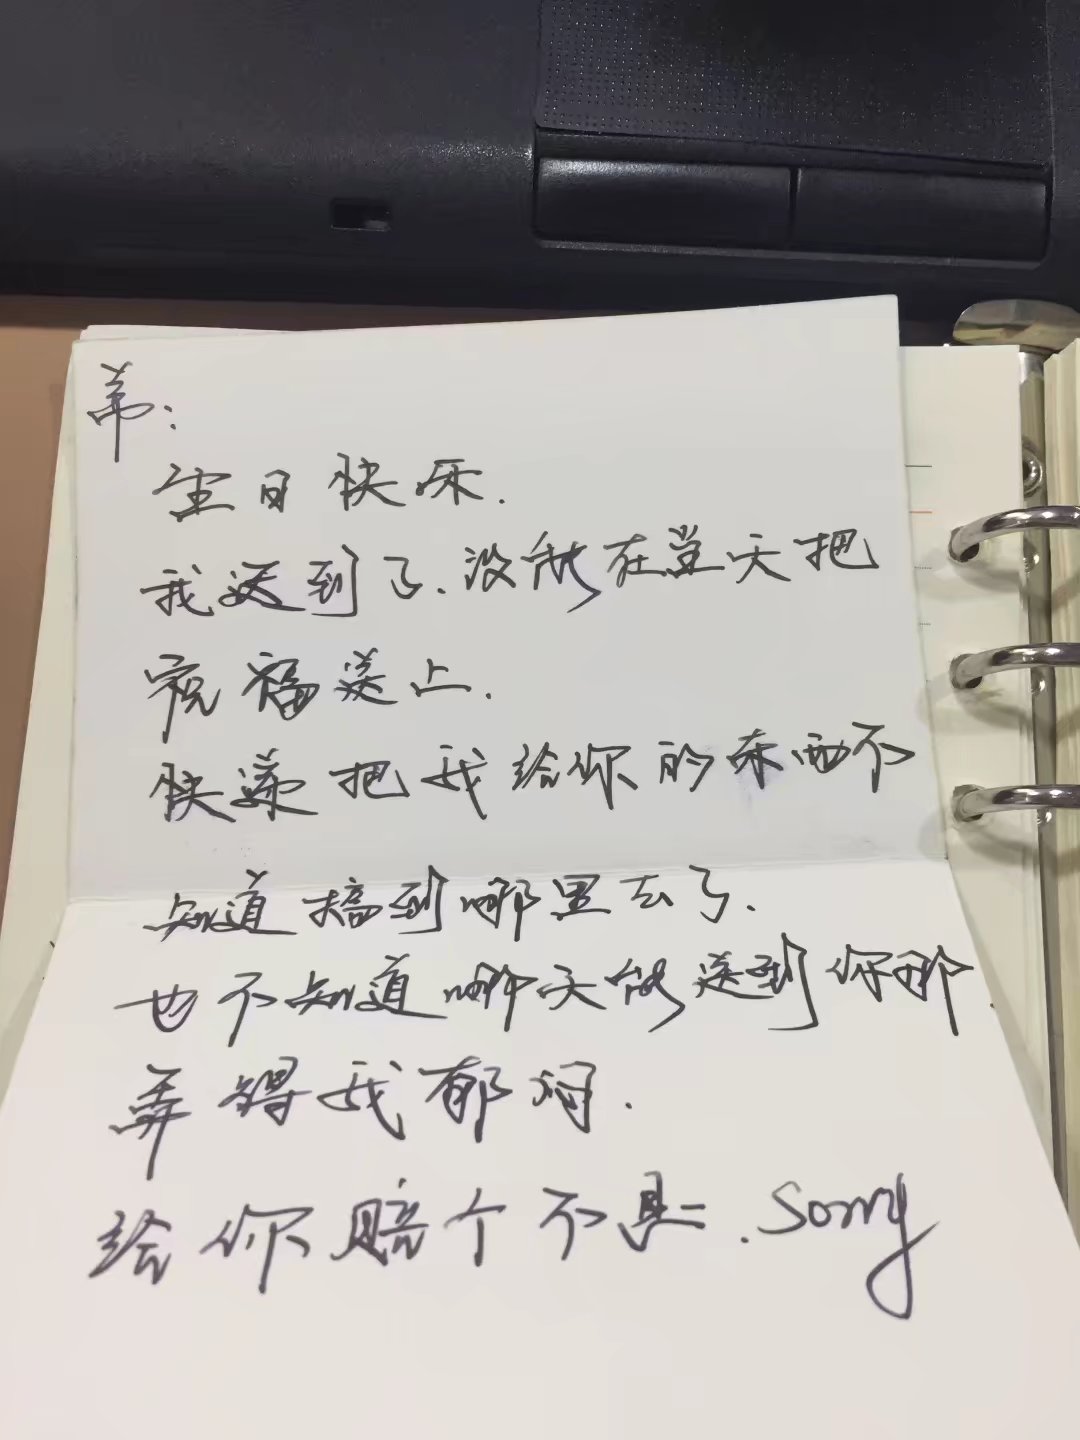 弟：
生日快乐.
我迟到了.没能在当天把
祝福送上.
快递把我给你的东西不
知道搞到哪里去了.
也不知道哪天能送到你那.
弄得我郁闷.
给你赔个不是.sorry